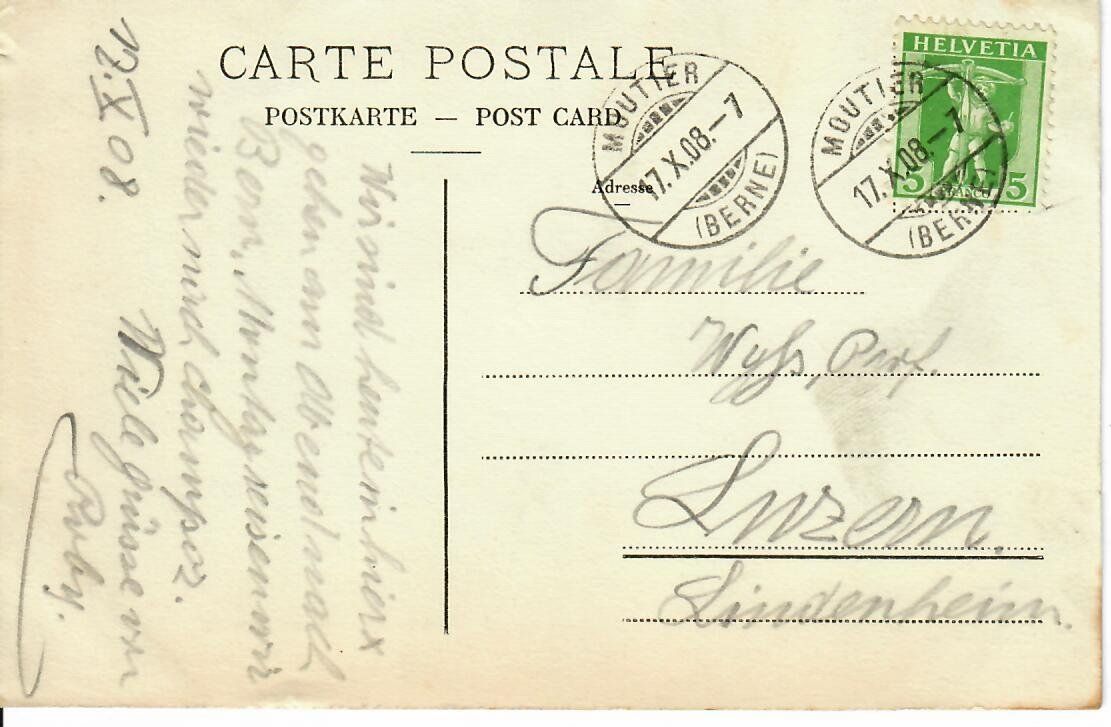 CARTE POSTALE
POSTKARTE — POST CARD
HELVETIA
5 FRANCO 5
MOUTIER
17.X.08.–7
(BERNE)
MOUTIER
17.X.08.–7
(BERNE)
Adresse
Familie
Wyss, Prof.
Luzern.
Lindenheim.
Wir sind heute in hier
gehen am Abend nach
Montag reisen wir
wieder nach
Viele Grüsse von
17.X.08.